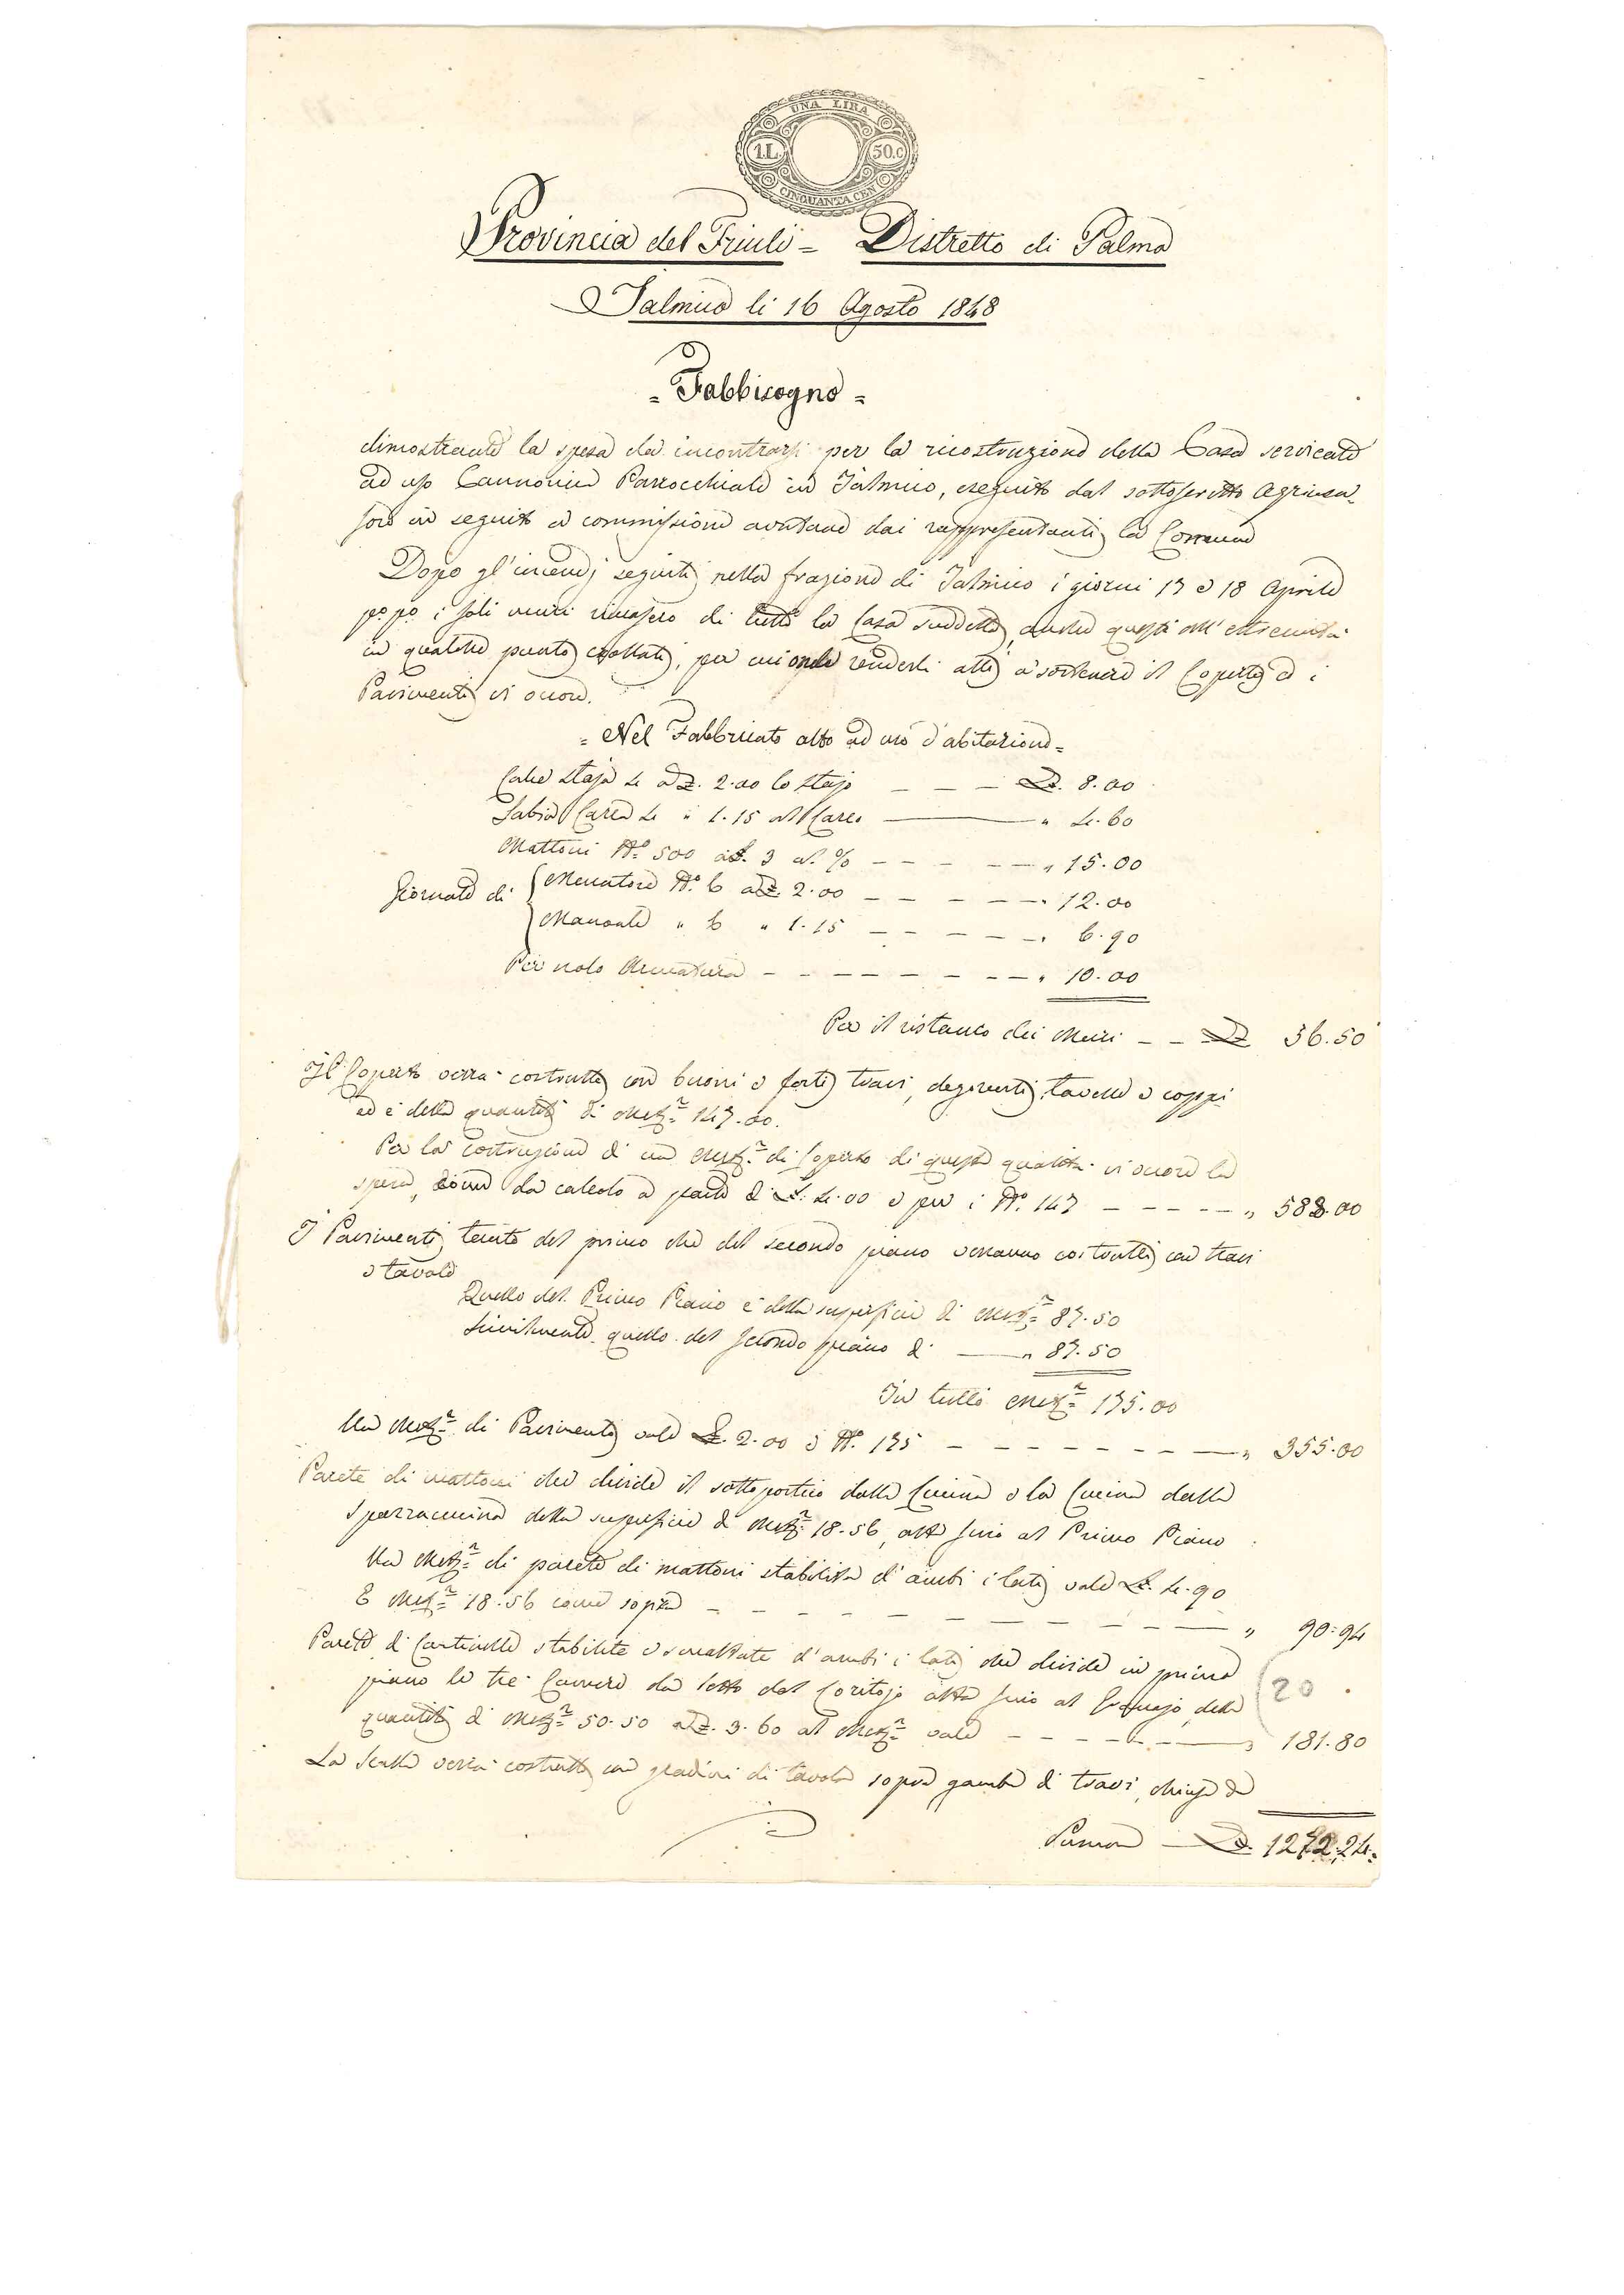 UNA LIRA
1.L. 50.c
CINQUANTA CEN
Provincia del Friuli = Distretto di Palma
Jalmico li 16 Agosto 1848
= Fabbisogno =
dimostrante la spesa da incontrarsi per la ricostruzione della Casa servente
ad uso Cannonica Parrocchiale in Jalmico, eseguito dal sottoscritto Agrimen-
sore in seguito a commissione avutane dai rappresentanti la Comune
Dopo gl'incendj seguiti nella frazione di Jalmico i giorni 17 e 18 Aprile
pº pº i soli muri rimasero di tutta la Casa suddetta, anche questi all'estremità
in qualche punto crollati, per cui onde renderli atti a sostenere il Coperto ed i
Pavimenti vi occore.
= Nel Fabbricato alto ad uso d'abitazione =
Calce staja 4 a L. 2.00 lo stajo — — — L. 8.00
Sabia Carra 4 " 1.15 al Caro — " 4.60
Mattoni Nº 500 a L. 3 al % — — — — " 15.00
Giornate di { Muratore Nº 6 a L. 2.00 — — — — — " 12.00
{ Manuale " 6 " 1.15 — — — — — " 6.90
Per nolo Armatura — — — — — — — " 10.00
Per il ristauro dei Muri — — L. 56.50
Il Coperto verrà costrutto con buoni e forti travi, degorenti, tavelle e coppi
ed è della quantità di Metri 147.00.
Per la costruzione di un Met. di Coperto di questa qualità vi occore la
spesa, come da calcolo a parte di L. 4.00 e per i Nº 147 — — — — " 588.00
I Pavimenti tanto del primo che del secondo piano verranno costrutti con travi
e tavole
Quello del Primo Piano è della superficie di Met. 87.50
Similmente quello del secondo piano di — " 87.50
In tutto Met. 175.00
Un Met. di Pavimento vale L. 2.00 e Nº 175 — — — — — — — " 355.00
Parete di mattoni che divide il sottoportico dalla Cucina e la Cucina dalla
Spazzacucina della superficie di Met. 18.56, alta fino al Primo Piano
Un Met. di parete di mattoni stabilita d'ambi i lati vale L. 4.90
E Met. 18.56 come sopra — — — — — — — — " 90.94
Parete di Cantinelle stabilite e smaltate d'ambi i lati che divide in primo
piano le tre Camere da letto dal Coritojo alta fino al , della
(20
quantità di Met. 50.50 a L. 3.60 al Met. vale — — — — " 181.80
La Scalla verrà costrutta con gradini di tavola sopra gambe di travi, chiusa da
Somma — L. 1272.24=